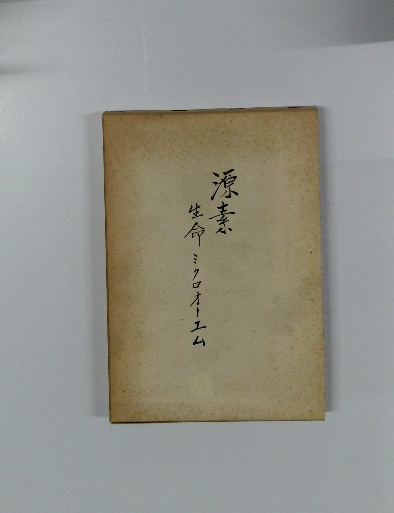 源素
生命 ミクロオーエム